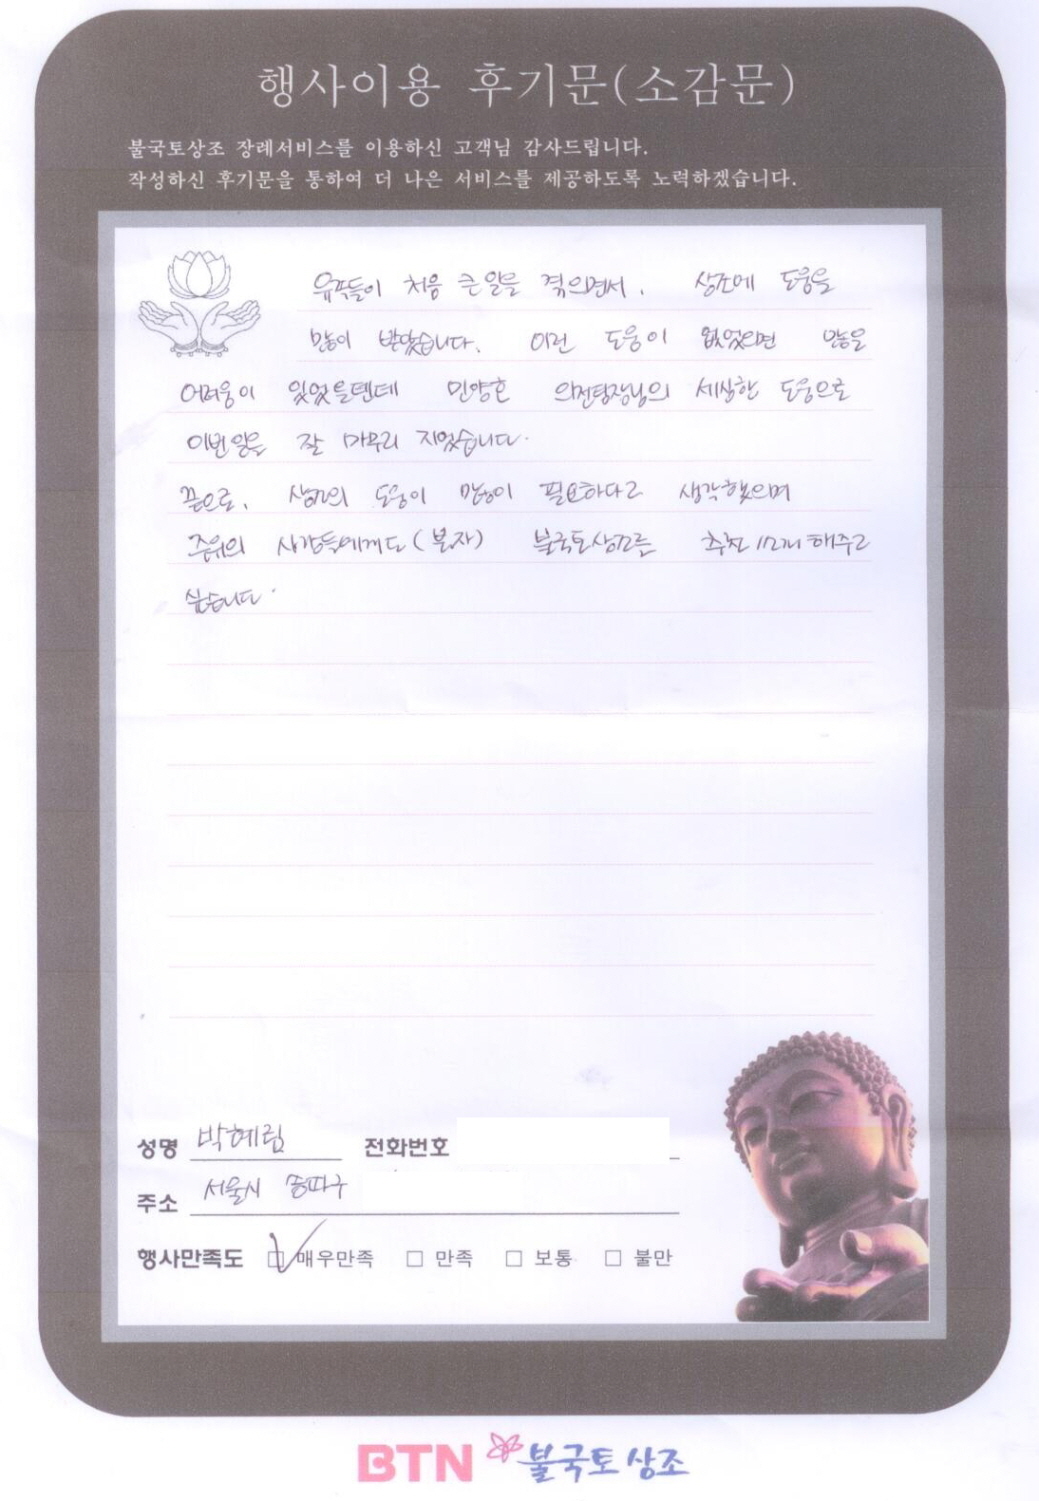 행사이용 후기문(소감문)
불국토상조 장례서비스를 이용하신 고객님 감사드립니다.
작성하신 후기문을 통하여 더 나은 서비스를 제공하도록 노력하겠습니다.
유족들이 처음 큰일을 겪으면서, 상조에 도움을
많이 받았습니다. 이런 도움이 없었으면 많은
어려움이 있었을텐데 민양호 의전팀장님의 세심한 도움으로
이번일을 잘 마무리 지었습니다.
끝으로, 상조의 도움이 많이 필요하다고 생각했으며
주위의 사람들에게도 (불자) 불국토상조를 추천 해주고
싶습니다.
성명 박혜림 전화번호
주소 서울시 송파구
행사만족도 매우만족 만족 보통 불만
BTN 불국토상조